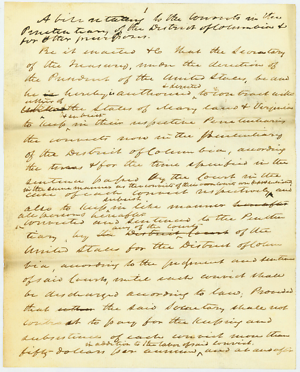 1
A bill relating to the Convicts in the
Penitentiary of the District of Columbia &
for other purposes.
Be it enacted &c That the Secretary
of the Treasury, under the direction of
the President of the United States, be and
he is hereby authorized & directed to contract with
either of the States of Maryland & Virginia
to keep & subsist in their respective Penitentiary
the convicts now in the Penitentiary
of the District of Columbia, according
the terms & for the time specified in the
sentence passed by the Court in the
case of each convict respectively and
also to keep & subsist in like manner
all persons hereafter
convicted and sentenced to the Peniten
tiary, by any of the Courts of the
United States for the District of Colum
bia, according to the judgment and sentence
of said Courts, until each convict shall
be discharged according to law; Provided
that the said Secretary shall not
contract to pay for the keeping and
subsistence of each convict more than
in addition to the labor of said convict,
fifty dollars per annum, and